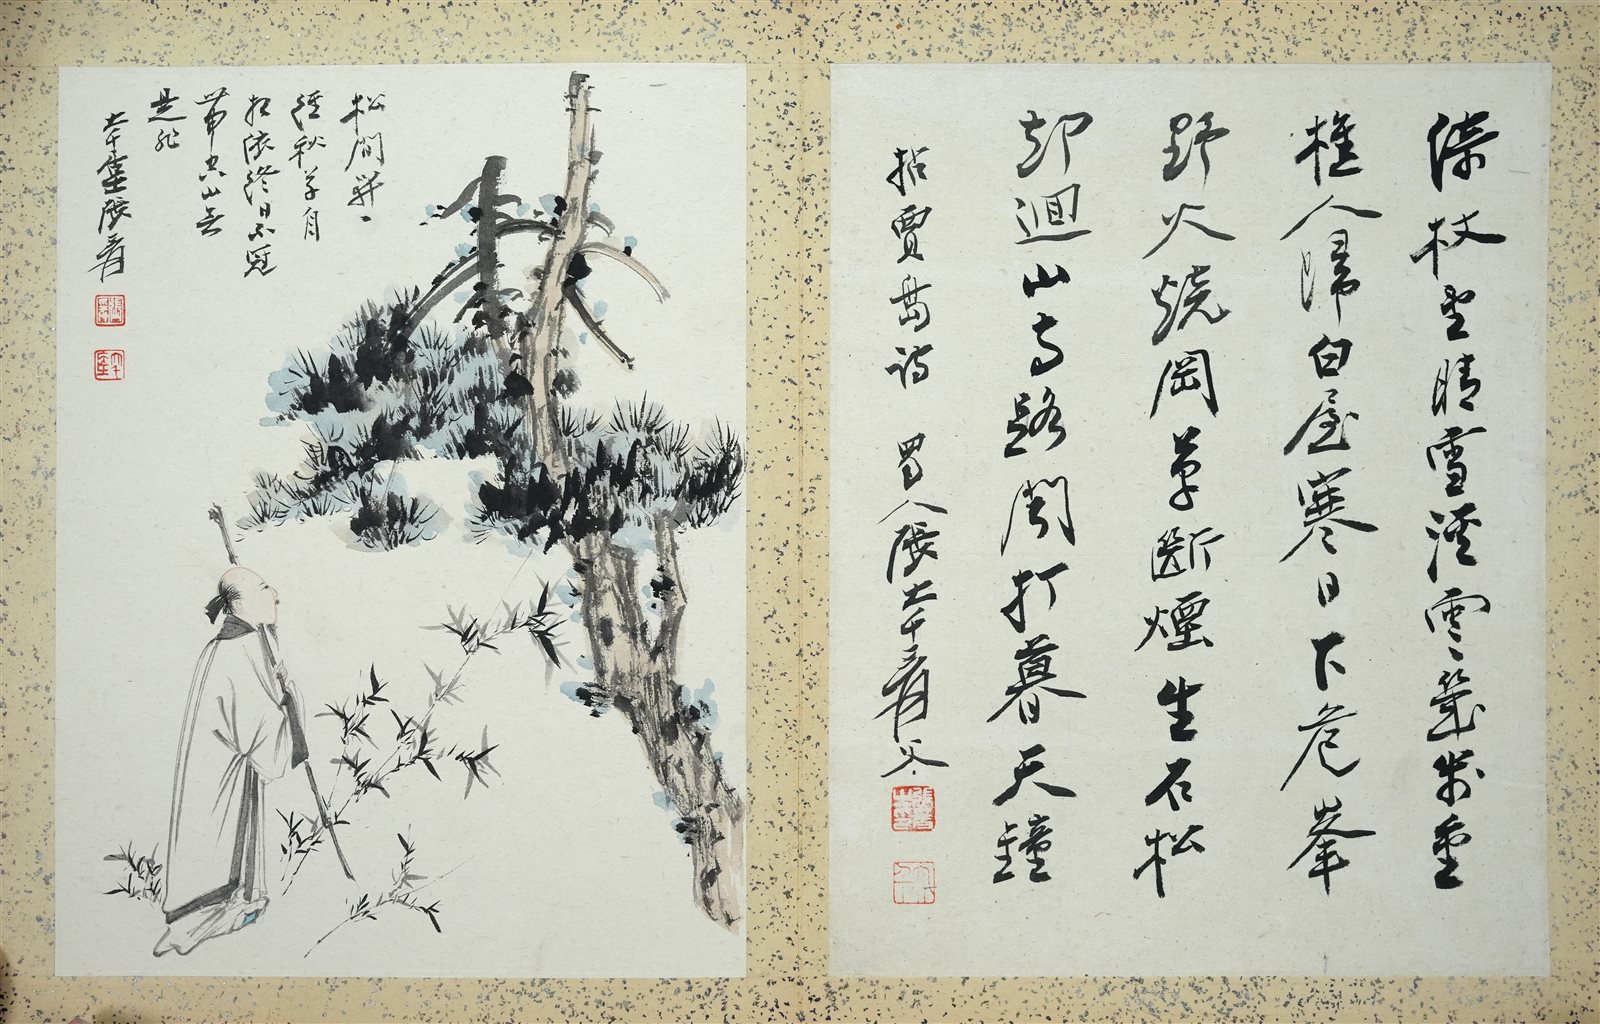 倚杖望晴雪溪雲幾萬重
樵人歸白屋寒日下危峯
野火燒岡草斷煙生石松
却迴山寺路聞打暮天鐘
拈賈島詩 蜀人張大千爰父
松間
徑秋草自
相依終日不冠
帶空山無
是非
大千居士張爰